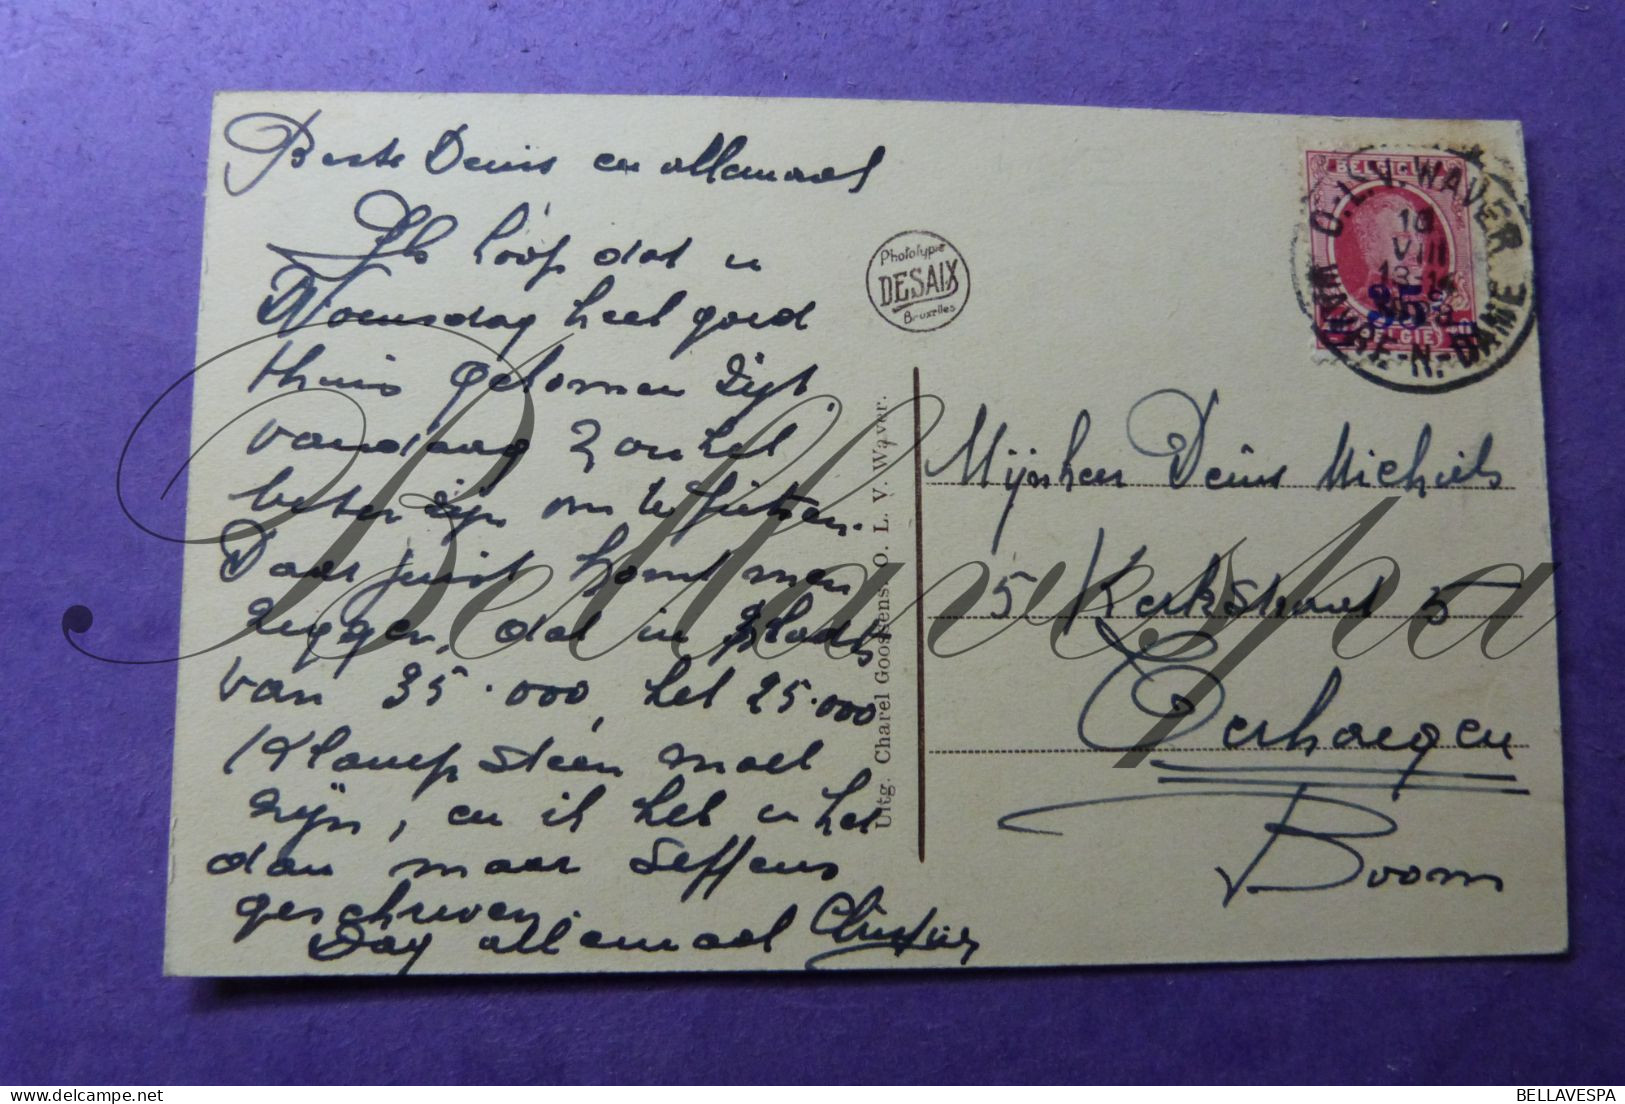 Beste Denis en allemaal
Ik hoop dat u
Woensdag heel goed
thuis gekomen zijt,
vandaag zou het
beter zijn om te fietsen.
Daar juist komt men
zeggen, dat in plaats
van 35.000, het 25.000
Klampsteen moet
zijn, en ik heb u het
dan maar seffens
geschreven.
Dag allemaal
Phototypie
DESAIX
Bruxelles
Uitg. Charel Goossens. O. L. V. Waver.
BELGIQUE
BELGIË
35c
O.-L.-V.-WAVER
10
VIII
WAVRE-N.-DAME
Mijnheer Denis Michiels
5 Kerkstraat 5
Terhaegen
Boom
Bellavespa
BELLAVESPA